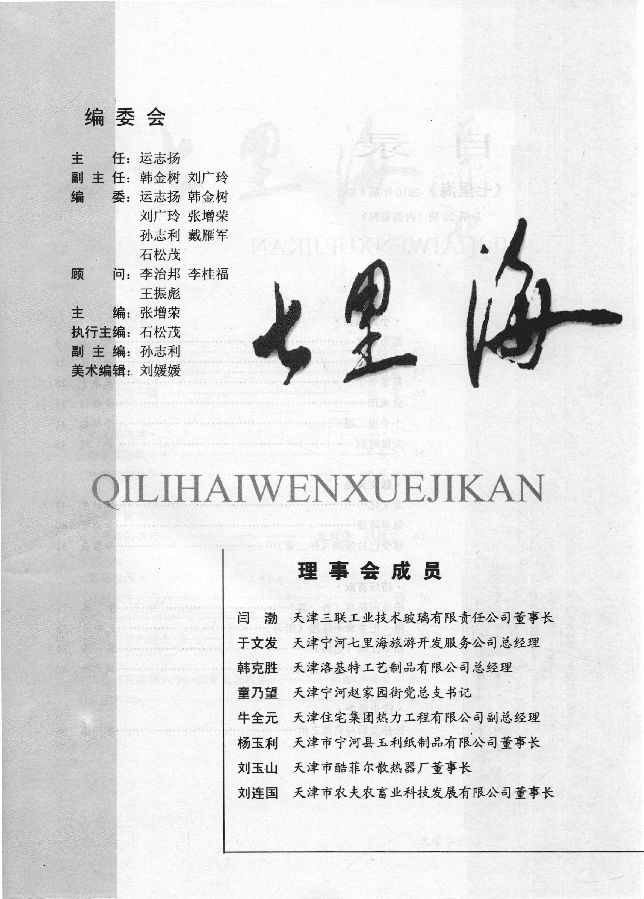 编委会
主 任：运志扬
副主任：韩金树 刘广玲
编 委：运志扬 韩金树
刘广玲 张增荣
孙志利 戴雁军
石松茂
顾 问：李治邦 李桂福
王振彪
主 编：张增荣
执行主编：石松茂
副主编：孙志利
美术编辑：刘媛媛
七里海
QILIHAIWENXUEJIKAN
理事会成员
闫 渤 天津三联工业技术玻璃有限责任公司董事长
于文发 天津宁河七里海旅游开发服务公司总经理
韩克胜 天津洛基特工艺制品有限公司总经理
童乃望 天津宁河赵家园街党总支书记
牛全元 天津住宅集团热力工程有限公司副总经理
杨玉利 天津市宁河县玉利纸制品有限公司董事长
刘玉山 天津市酷菲尔散热器厂董事长
刘连国 天津市农夫农畜业科技发展有限公司董事长